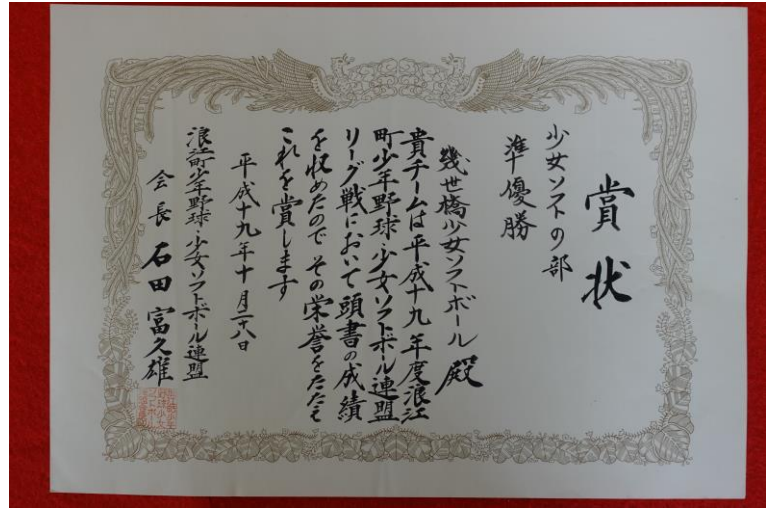 賞状
少女ソフトの部
準優勝
幾世橋少女ソフトボール殿
貴チームは平成十九年度浪江
町少年野球・少女ソフトボール連盟
リーグ戦において頭書の成績
を収めたのでその栄誉をたたえ
これを賞します
平成十九年十月二十八日
浪江町少年野球・少女ソフトボール連盟
会長 石田富久雄